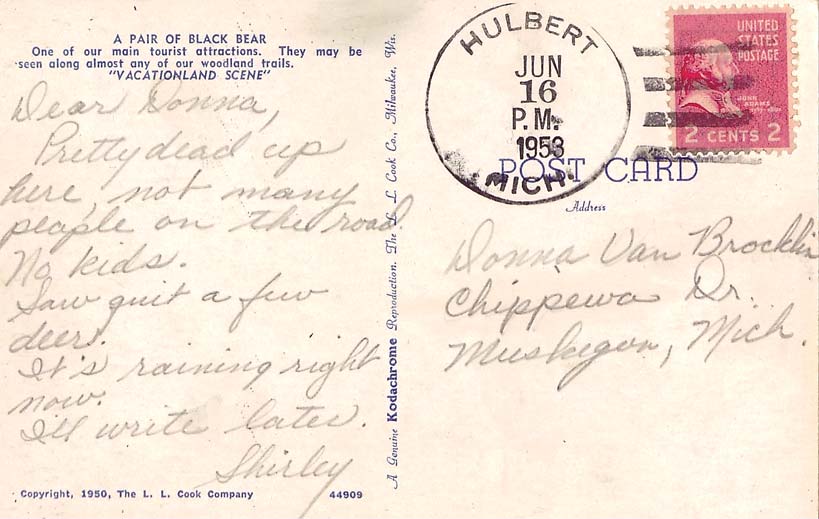 A PAIR OF BLACK BEAR
One of our main tourist attractions. They may be
seen along almost any of our woodland trails.
"VACATIONLAND SCENE"
Dear Donna,
Pretty dead up
here, not many
people on the road.
No kids.
Saw quit a few
deer.
It's raining right
now.
I'll write later.
Shirley
Copyright, 1950, The L. L. Cook Company 44909
A Genuine Kodachrome Reproduction. The L. L. Cook Co., Milwaukee, Wis.
HULBERT
JUN
16
P.M.
1953
MICH.
UNITED
STATES
POSTAGE
JOHN
ADAMS
2 CENTS 2
POST CARD
Address
Donna Van Brocklin
Chippewa Dr.
Muskegon, Mich.